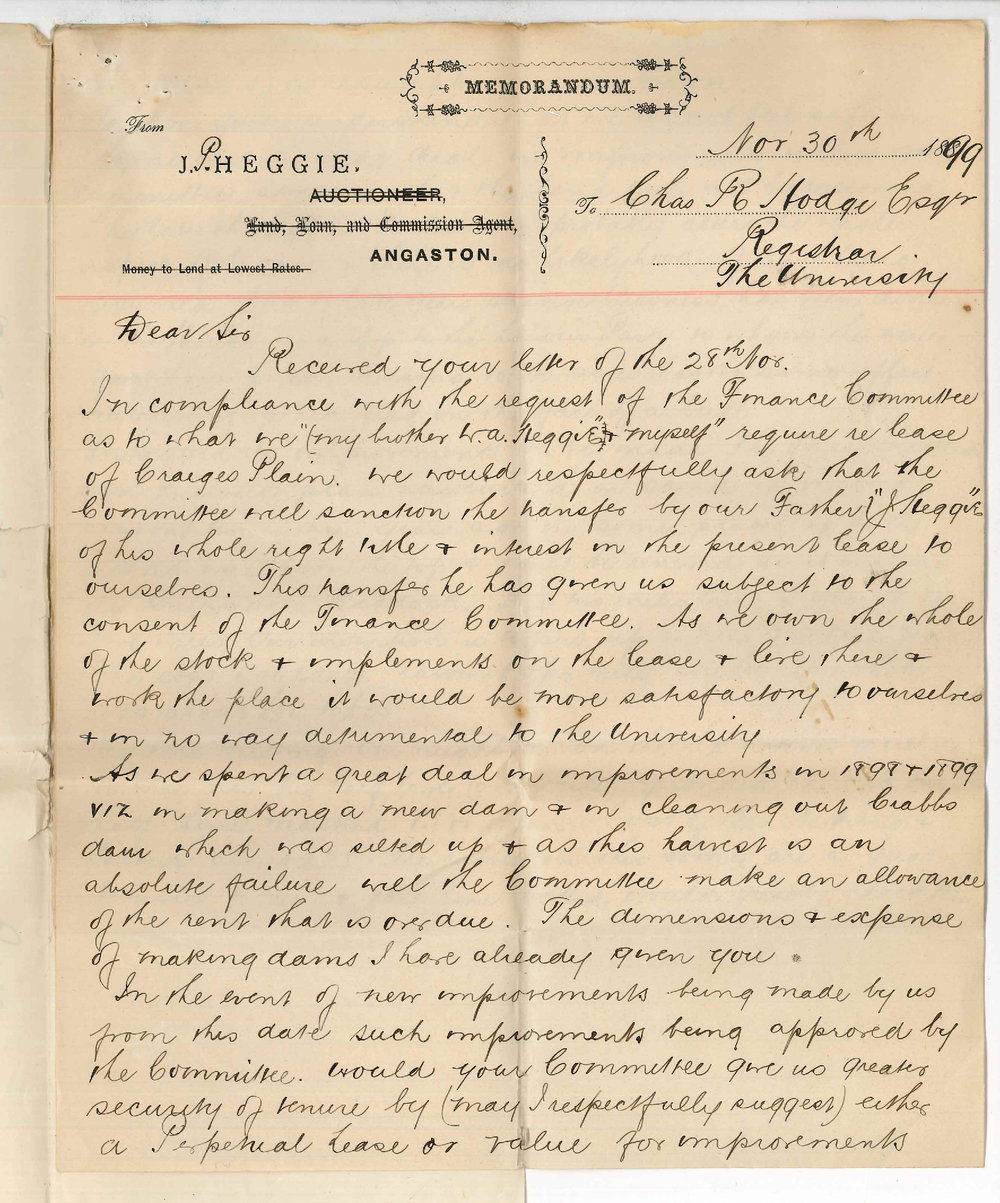 MEMORANDUM.
From
J.P. HEGGIE.
AUCTIONEER,
Land, Loan, and Commission Agent,
ANGASTON.
Money to Lend at Lowest Rates.
Nov 30th 1899
To Chas R Hodge Esqr
Registrar
The University
Dear Sir
Received your letter of the 28th Nov.
In compliance with the request of the Finance Committee
as to what we "(my brother W.A. Heggie") & myself" require re lease
of Craiges Plain. we would respectfully ask that the
Committee will sanction the transfer by our Father ("J Heggie"
of his whole right title & interest in the present lease to
ourselves. This transfer he has given us subject to the
consent of the Finance Committee. As we own the whole
of the stock & implements on the lease & live there &
work the place it would be more satisfactory to ourselves
& in no way detrimental to the University
As we spent a great deal in improvements in 1898 & 1899
viz in making a new dam & in cleaning out Crabbs
dam which was silted up & as this harvest is an
absolute failure will the Committee make an allowance
of the rent that is overdue. The dimensions & expense
of making dams I have already given you.
In the event of new improvements being made by us
from this date such improvements being approved by
the Committee. would your Committee give us greater
security of tenure by (may I respectfully suggest) either
a Perpetual Lease or value for improvements